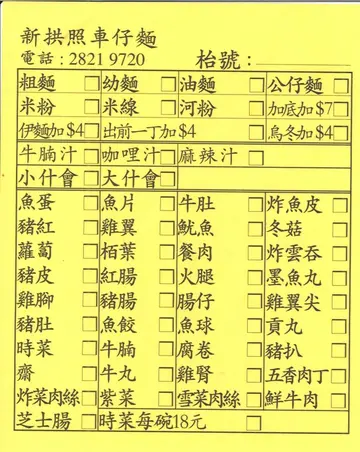 新拱照車仔麵
電話：2821 9720 枱號：
粗麵 幼麵 油麵 公仔麵
米粉 米線 河粉 加底加$7
伊麵加$4 出前一丁加$4 烏冬加$4
牛腩汁 咖哩汁 麻辣汁
小什會 大什會
魚蛋 魚片 牛肚 炸魚皮
豬紅 雞翼 魷魚 冬菇
蘿蔔 栢葉 餐肉 炸雲吞
豬皮 紅腸 火腿 墨魚丸
雞腳 豬腸 腸仔 雞翼尖
豬肚 魚餃 魚球 貢丸
時菜 牛腩 腐卷 豬扒
齋 牛丸 雞腎 五香肉丁
炸菜肉絲 紫菜 雪菜肉絲 鮮牛肉
芝士腸 時菜每碗18元